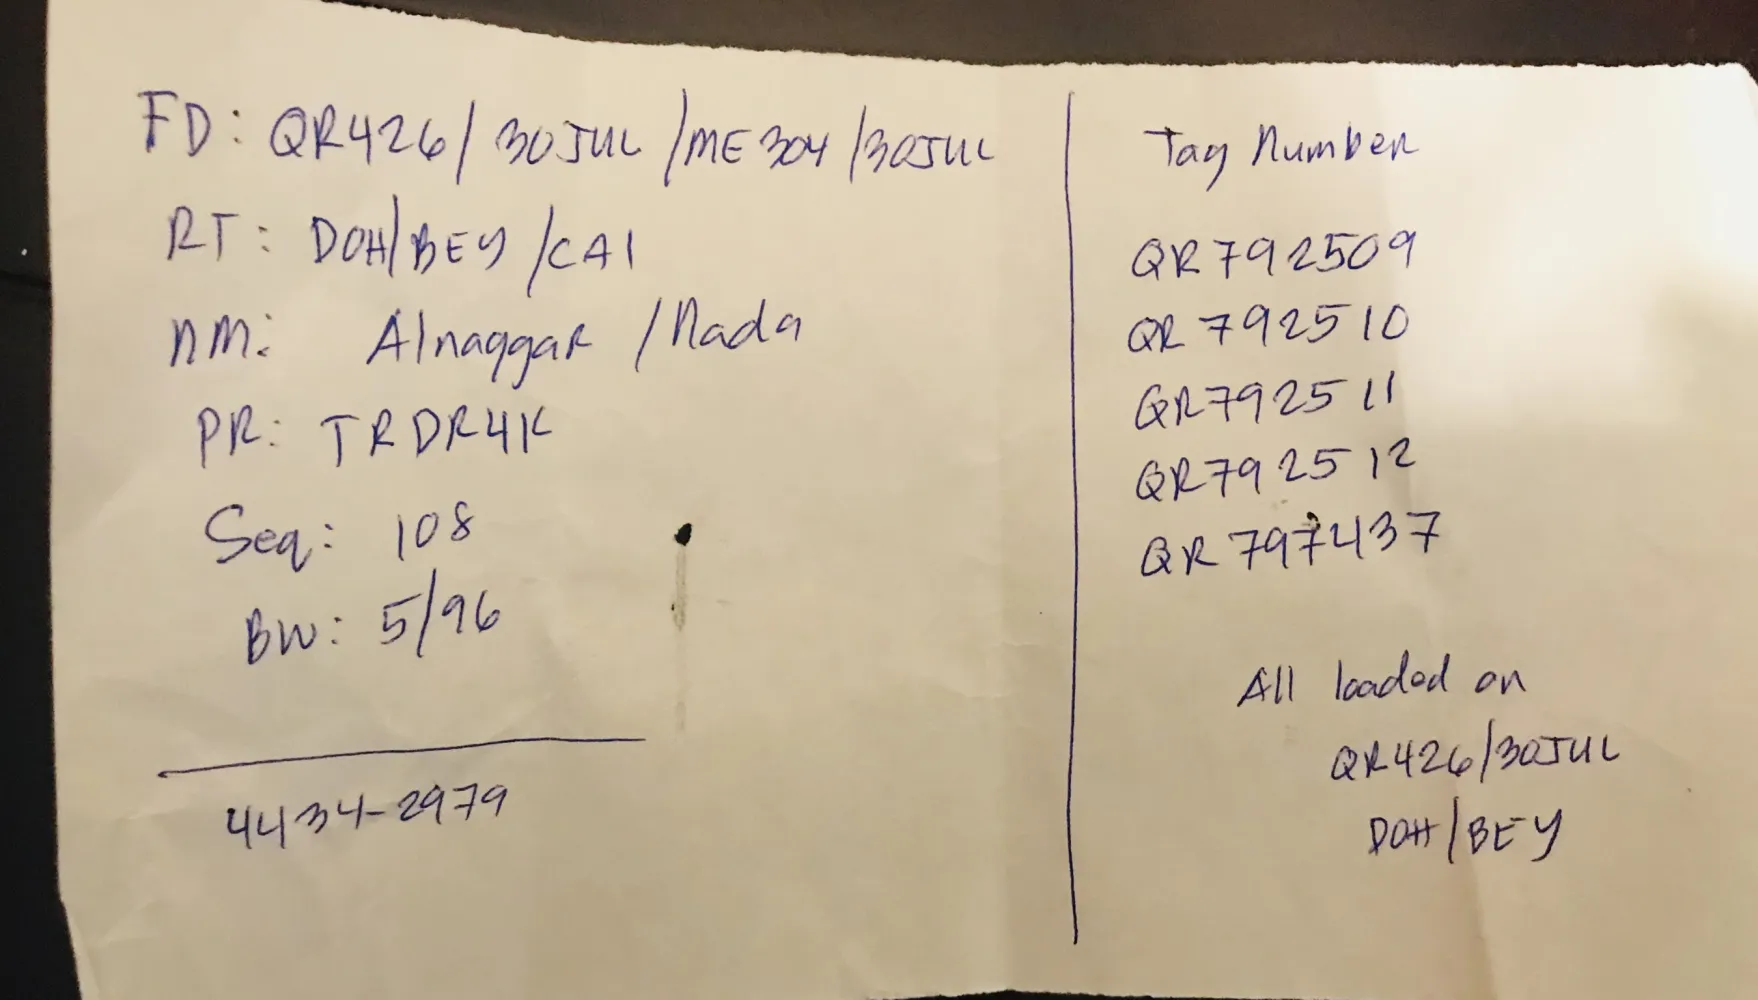 FD: QR426/30JUL/ME304/30JUL
RT: DOH/BEY/CAI
NM: Alnaggar/Nada
PR: TRDR4K
Seq: 108
BW: 5/96
4434-2979
Tag Number
QR792509
QR792510
QR792511
QR792512
QR797437
All loaded on
QR426/30JUL
DOH/BEY